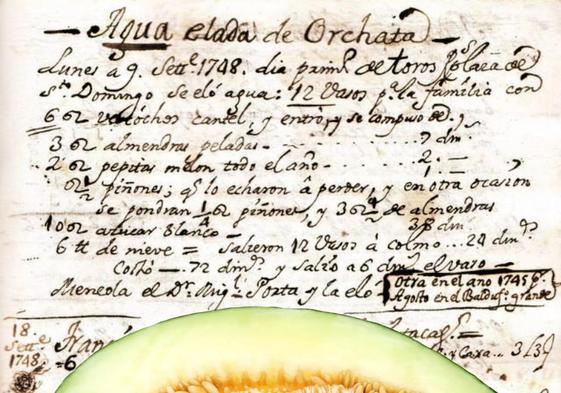 — Agua elada de Orchata —
Lunes a 9. Settᵉ. 1748. dia primʳ de toros
sᵗᵒ Domingo se eló agua: 12 Vasos pᵃ la familia con
6 oz cantel, y entró, y se compuso de. y
3 oz almendras peladas - - - - - 7 dinˢ
2 oz pepitas melon todo el año - - - - 2. —
oz ½ piñones; qᵉ lo echaron â perder, y en otra ocasion
se pondran ¼ oz piñones, y 3 oz ¼ de almendras
10 oz azucar Blanco - - - - 38 dinˢ
6 tt de nieve = Salieron 12 Vasos à colmo ... 24 dinˢ
Costó — 72 dinˢ. y Salió a 6 dinˢ el vaso —
Meneola el Dʳ. Migˡ Porta y la eló
Otra en el ano 1745 6.
Agosto en el Balduf.ˢ grande
18.
Settᵉ
1748.
y Caxa...